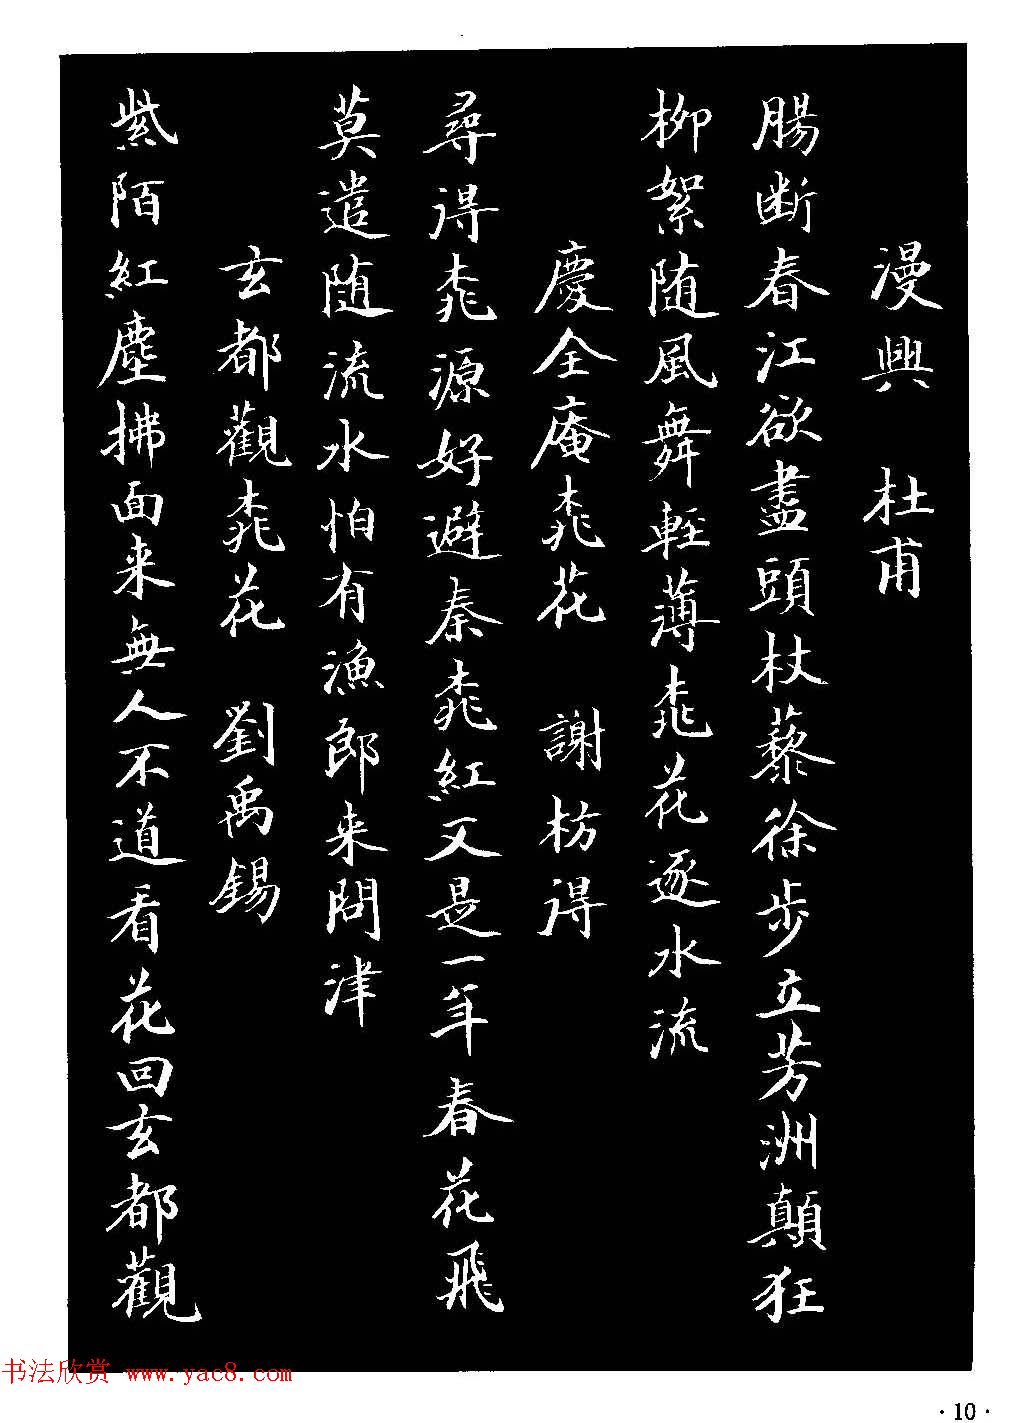 漫興 杜甫
腸断春江欲盡頭杖藜徐步立芳洲顛狂
柳絮随風舞輕薄桃花逐水流
慶全庵桃花 謝枋得
尋得桃源好避秦桃紅又是一年春花飛
莫遣随流水怕有漁郎来問津
玄都觀桃花 劉禹錫
紫陌紅塵拂面来無人不道看花回玄都觀
书法欣赏 www.yac8.com
·10·